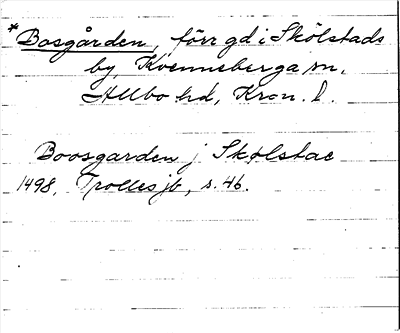 *Bosgården, förr gd i Skölstads
by, Kvenneberga sn,
Allbo hd, Kron. l.
Boosgarden j Skølstac
1498, Trolles jb, s. 46.